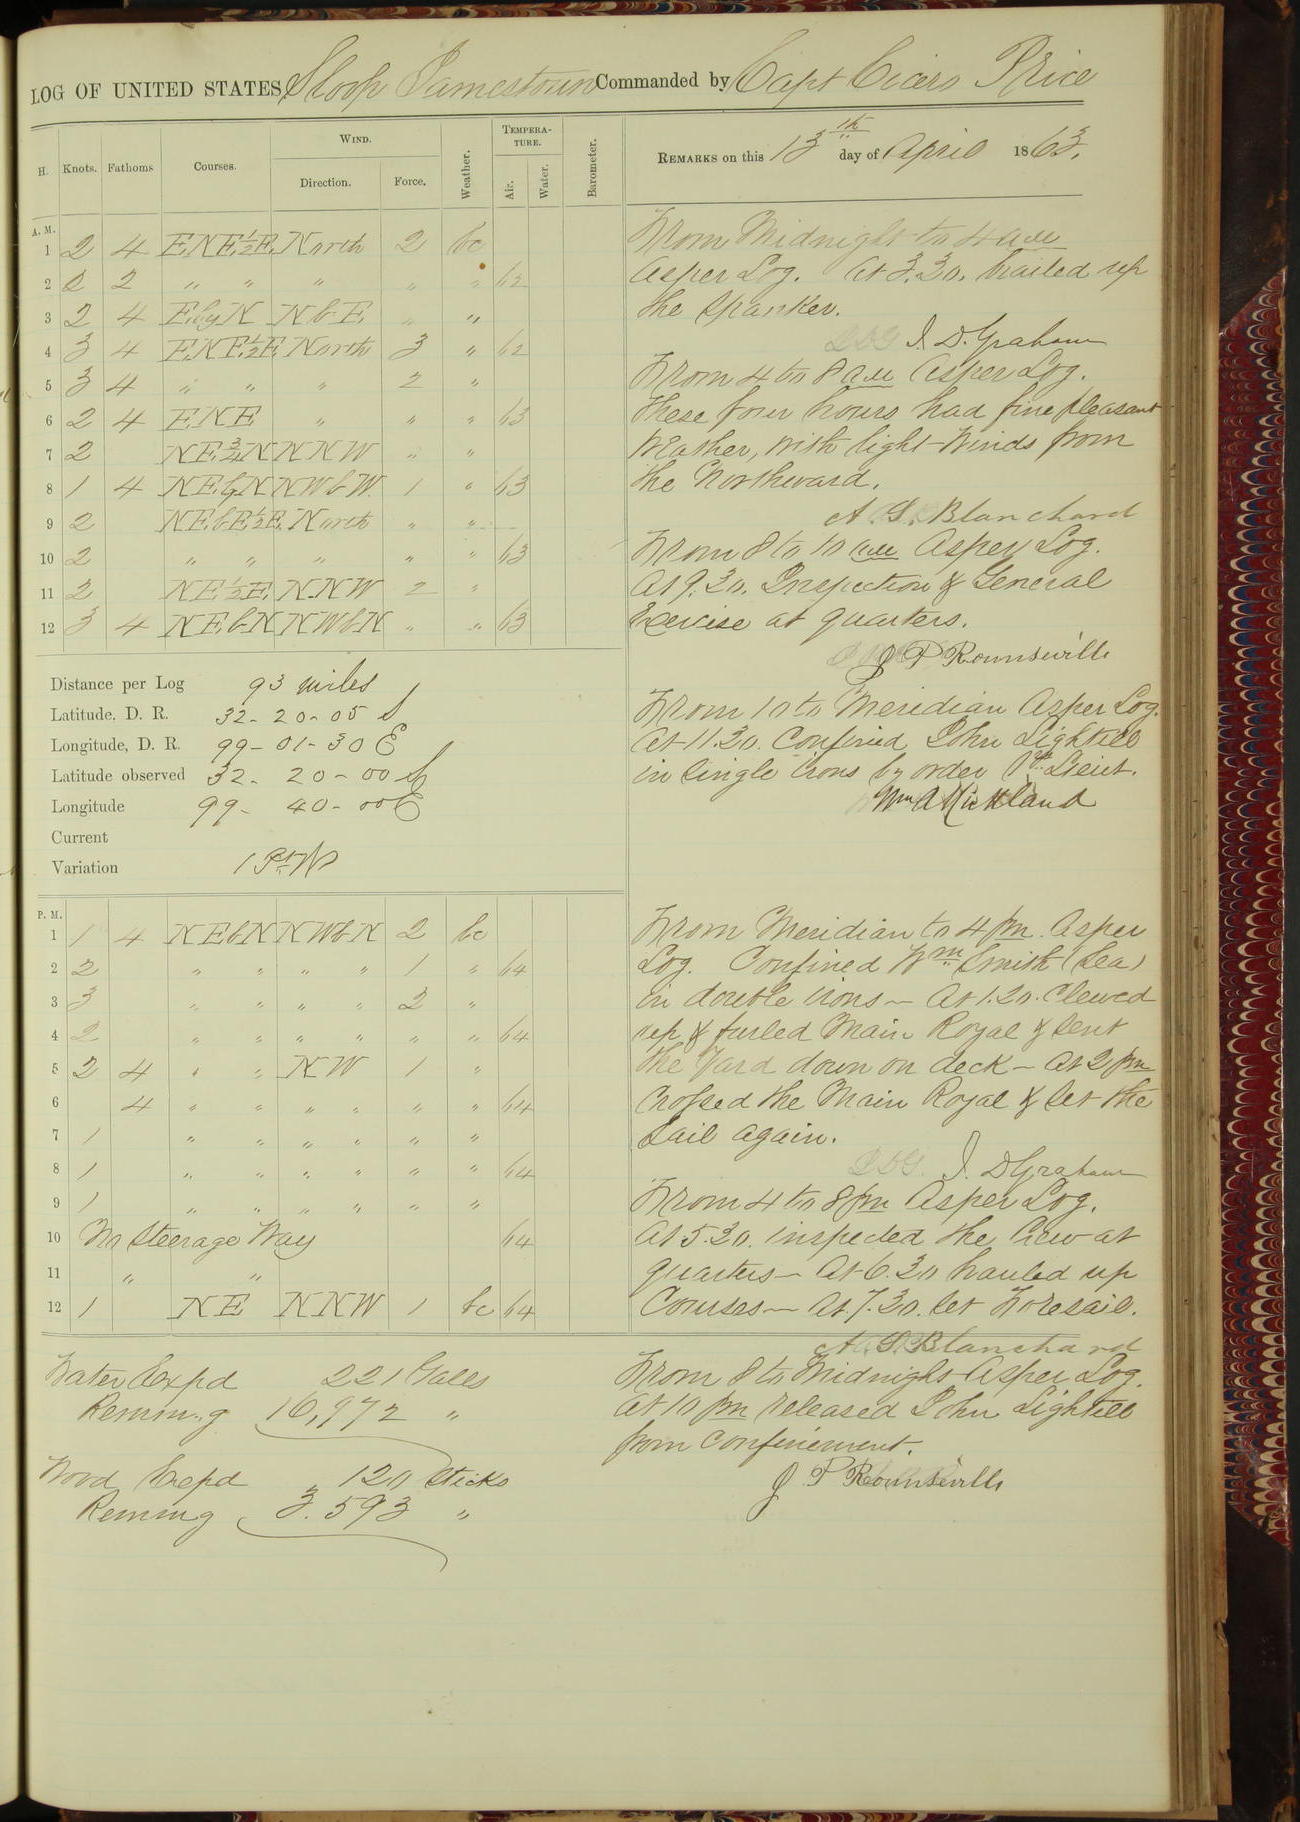 LOG OF UNITED STATES Sloop Jamestown Commanded by Capt Cicero Price
H. Knots. Fathoms Courses. WIND. Direction. Force. Weather. TEMPERATURE. Air. Water. Barometer. REMARKS on this 13th day of April 1863.
A. M.
1 2 4 ENE½E. North 2 bc
2 2 2 " " " " " 62
3 2 4 E.byN NbE. " "
4 3 4 ENE½E North 3 " 62
5 3 4 " " " 2 "
6 2 4 ENE " " " 63
7 2 NE¾N NNW " "
8 1 4 NEbyN NWbW. 1 " 63
9 2 NEbE½E. North " "
10 2 " " " " " 63
11 2 NE½E. NNW 2 "
12 3 4 NEbN NWbN " " 63
Distance per Log 93 miles
Latitude, D. R. 32-20-05 S
Longitude, D. R. 99-01-30 E
Latitude observed 32-20-00 S
Longitude 99-40-00 E
Current
Variation 1 Pt W
P. M.
1 1 4 NEbN NWbN 2 bc
2 2 " " " " 1 " 64
3 3 " " " " 2 "
4 2 " " " " " " 64
5 2 4 " " NW 1 "
6 4 " " " " " " 64
7 1 " " " " " "
8 1 " " " " " " 64
9 1 " " " " " "
10 No Steerage Way 64
11 " "
12 1 NE NNW 1 bc 64
Water Expd 221 Galls
Reming 16,972 "
Wood Expd 120 Sticks
Reming 3.593 "
From Midnight to 4 am
As per Log. At 3.30. brailed up
the Spanker.
J. D. Graham
From 4 to 8 am As per Log.
These four hours had fine pleasant
Weather, with light Winds from
the Northward.
A. S. Blanchard
From 8 to 10 am As per Log.
At 9.30. Inspection & General
Exercise at quarters.
J P Rounsevill
From 10 to Meridian As per Log.
At 11.30. Confined John Lightell
in Single irons by order 1st Lieut.
Wm A Kirkland
From Meridian to 4 pm. As per
Log. Confined Wm Smith (Sea)
in double irons - At 1.20. Clewed
up & furled Main Royal & sent
the Yard down on deck - At 2 pm
Crossed the Main Royal & set the
Sail again.
J. D Graham
From 4 to 8 pm As per Log.
At 5.30. inspected the Crew at
quarters - At 6.30 hauled up
Courses - At 7.30. set Foresail.
A. S. Blanchard
From 8 to Midnight As per Log.
At 10 pm released John Lightell
from Confinement.
J P Rounsevill